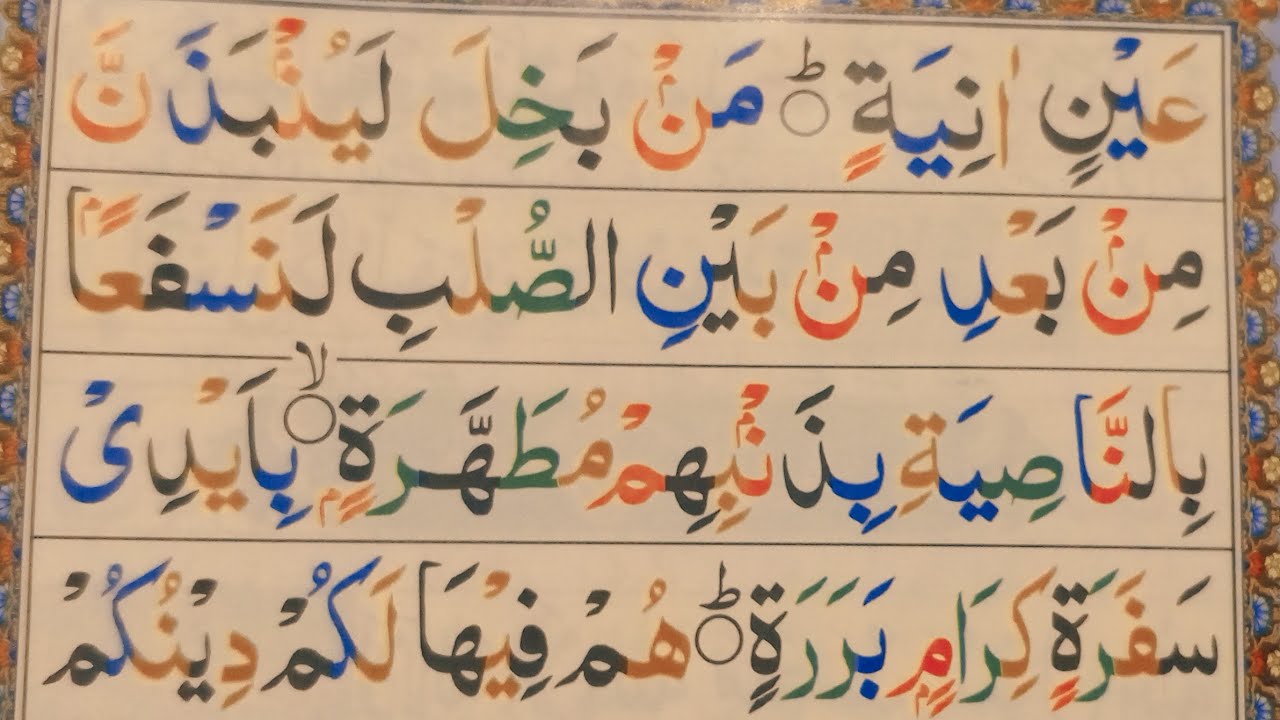 عَيْنٍ اٰنِيَةٍ ؕ مَنْۢ بَخِلَ لَيُنْۢبَذَنَّ
مِنْۢ بَعْدِ مِنْۢ بَيْنِ الصُّلْبِ لَنَسْفَعًاۢ
بِالنَّاصِيَةِ بِذَنْۢبِهِمْ مُطَهَّرَةٍۭ ۙ بِاَيْدِىْ
سَفَرَةٍ كِرَامٍۭ بَرَرَةٍ ؕ هُمْ فِيْهَا لَكُمْ دِيْنُكُمْ